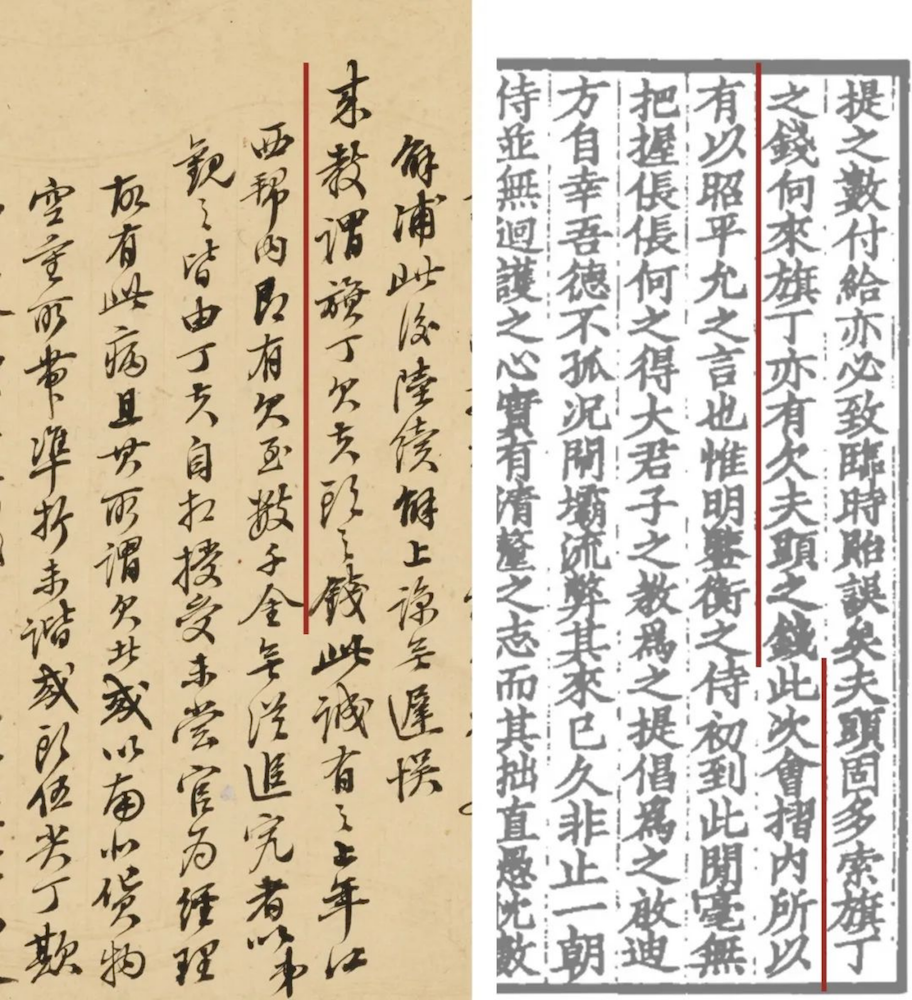 解浦此後陸續解上諒無遲悞
来教謂旗丁欠夫頭之錢此誠有之上年江
西幫内即有欠至數千金無從追究者以弟
觀之皆由丁夫自相授受未嘗官为經理
故有此病且其所謂欠或以南北貨物
空重所帶準折未諧或頭伍尖丁欺
提之數付給亦必致臨時貽誤矣夫頭固多索旗丁
之錢向來旗丁亦有欠夫頭之錢此次會摺内所以
有以昭平允之言也惟明鑒衡之侍初到此間毫無
把握倀倀何之得大君子之教為之提倡為之啟迪
方自幸吾德不孤況閘壩流弊其來已久非止一朝
侍並無迴護之心實有清釐之志而其拙直愚忱數